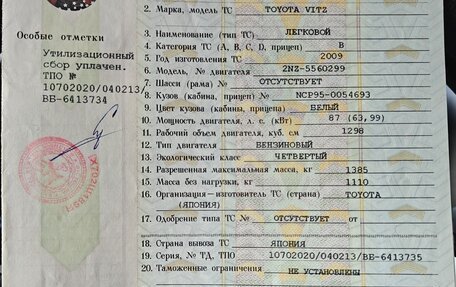 Особые отметки
Утилизационный
сбор уплачен.
ТПО №
10702020/040213/
ВВ-6413734
2. Марка, модель ТС TOYOTA VITZ
3. Наименование (тип ТС) ЛЕГКОВОЙ
4. Категория ТС (А, В, С, D, прицеп) В
5. Год изготовления ТС 2009
6. Модель, № двигателя 2NZ-5560299
7. Шасси (рама) № ОТСУТСТВУЕТ
8. Кузов (кабина, прицеп) № NCP95-0054693
9. Цвет кузова (кабины, прицепа) БЕЛЫЙ
10. Мощность двигателя, л. с. (кВт) 87 (63,99)
11. Рабочий объем двигателя, куб. см 1298
12. Тип двигателя БЕНЗИНОВЫЙ
13. Экологический класс ЧЕТВЕРТЫЙ
14. Разрешенная максимальная масса, кг 1385
15. Масса без нагрузки, кг 1110
16. Организация—изготовитель ТС (страна) TOYOTA
(ЯПОНИЯ)
17. Одобрение типа ТС № ОТСУТСТВУЕТ от
18. Страна вывоза ТС ЯПОНИЯ
19. Серия, № ТД, ТПО 10702020/040213/ВВ-6413735
20. Таможенные ограничения НЕ УСТАНОВЛЕНЫ